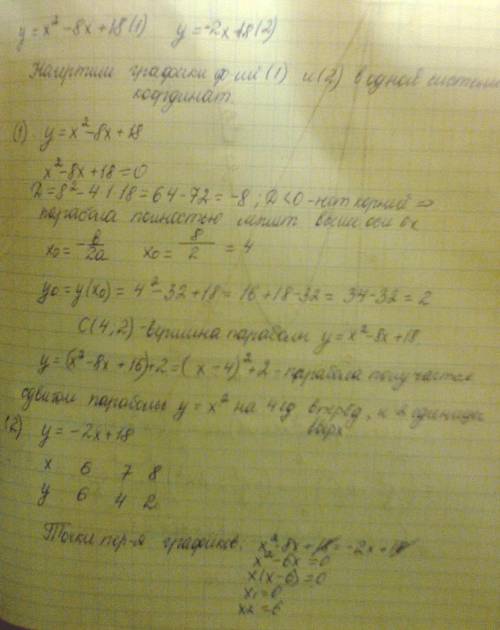 y=x²-8x+18(1) y=-2x+18(2)
Начертим графики ф-ий (1) и (2) в одной системе
координат.
(1) y=x²-8x+18
x²-8x+18=0
D=8²-4·1·18=64-72=-8; D<0-нет корней ⇒
парабола полностью лежит выше оси ох
x₀=-b/2a x₀=8/2=4
y₀=y(x₀)=4²-32+18=16+18-32=34-32=2
С(4;2)-вершина параболы y=x²-8x+18
y=(x²-8x+16)+2=(x-4)²+2-парабола получается
сдвигом параболы y=x² на 4 ед вперёд, и 2 единицы
вверх
(2) y=-2x+18
x 6 7 8
y 6 4 2
Точки пер-я графиков: x²-8x+18=-2x+18
x²-6x=0
x(x-6)=0
x₁=0
x₂=6